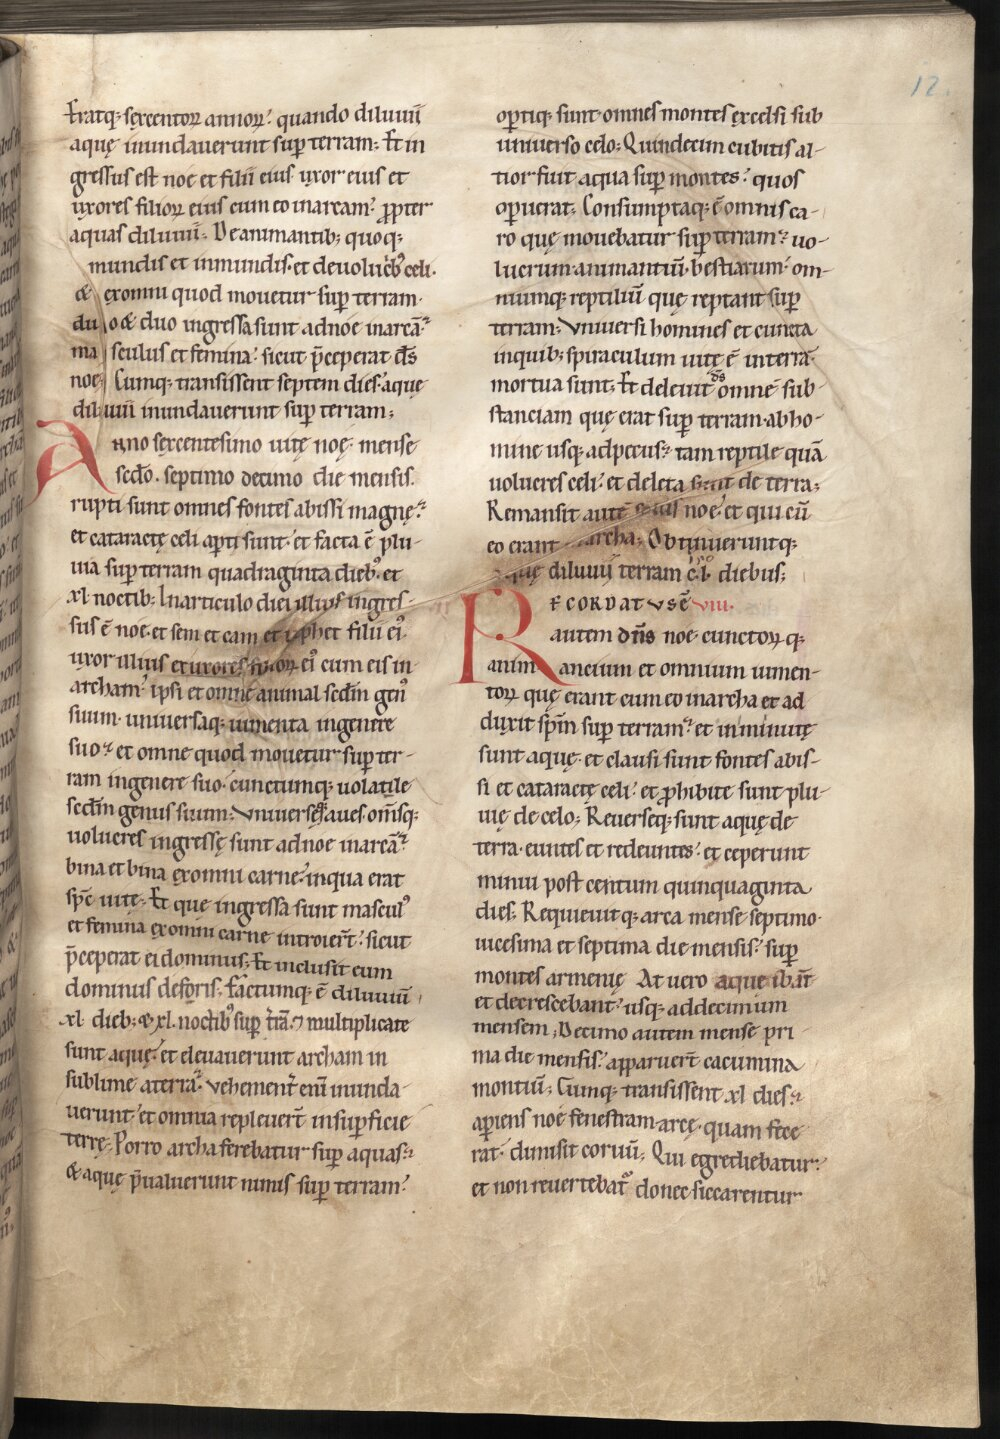 12.
Eratq; sexcentoꝝ annoꝝ. quando diluuii
aquę inundauerunt sup̄ terram; Et in
gressus est noe et filii eius uxor eius et
uxores filioꝝ eius cum eo in arcam. ꝓpter
aquas diluuii. De animantib; quoq;
mundis et inmundis. et de uolucrib; celi.
& ex omni quod mouetur sup̄ terram.
duo & duo ingressa sunt ad noe in arcā.
masculus et femina. sicut p̄ceperat d̄s
noe. Cumq; transissent septem dies. aquę
diluuii inundauerunt sup̄ terram;
Anno sexcentesimo uitę noę. mense
scd̄o. septimo decimo die mensis.
rupti sunt omnes fontes abissi magnę.
et cataractę celi apti sunt. et facta ē plu-
uia sup̄ terram quadraginta dieb; et
xl noctib; In articulo diei illius ingres-
sus ē noe. et sem et cam et iaphet filii ei᾽.
uxor illius et uxores filioꝝ ei᾽ cum eis in
archam. ipsi et omne animal scd̄m gen᾽
suum. uniuersaq; iumenta in genere
suo. et omne quod mouetur sup̄ ter-
ram in genere suo. cunctumq; uolatile
scd̄m genus suum. Vniuersęq; aues. om̄sq;
uolucres ingressę sunt ad noe in arcā.
bina et bina ex omni carne. in qua erat
sp̄c uitę; Et que ingressa sunt mascul᾽
et femina ex omni carne introiert̄. sicut
p̄ceperat ei dominus; Et inclusit eum
dominus deforis. factumq; ē diluuiū
xl dieb; & xl. noctib᾽ sup̄ trā. ⁊ multiplicate
sunt aquę. et eleuauerunt archam in
sublime a terra. Vehement̄ enī inunda-
uerunt. et omnia repleuert̄ in sup̄ficie
terrę. Porro archa ferebatur sup̄ aquas.
& aquę p̄ualuerunt nimis sup̄ terram.
optiq; sunt omnes montes excelsi sub
uniuerso celo; Quindecim cubitis al-
tior fuit aqua sup̄ montes. quos
opuerat; Consumptaq; ē omnis ca-
ro quę mouebatur sup̄ terram. uo-
lucrum. animantiū. bestiarum. om-
niumq; reptiliū quę reptant sup̄
terram; Vniuersi homines et cuncta
in quib; spiraculum uitę ē in terra.
mortua sunt; Et deleuit d̄s omnē sub-
stanciam quę erat sup̄ terram. ab ho-
mine usq; ad pecus. tam reptile quā
uolucres celi. et deleta sunt de terra;
Remansit autē solus noe. et qui cū
eo erant archa; Obtinueruntq;
aquę diluuii terram c.l. diebus;
RECORDATVS Ē VIII.
autem dn̄s noe. cunctoꝝ q;
animanciun et omnium iumen-
toꝝ quę erant cum eo in archa et ad
duxit sp̄m sup̄ terram. et inminutę
sunt aquę. et clausi sunt fontes abis-
si et cataractę celi. et ꝓhibitę sunt plu-
uię de celo; Reuerseq; sunt aquę de
terra. euntes et redeuntes. et ceperunt
minui post centum quinquaginta
dies; Requieuitq; arca mense septimo.
uicesima et septima die mensis. sup̄
montes armenię At uero aquę ibāt
et decrescebant. usq; ad decimum
mensem; Decimo autem mense pri
ma die mensis. apparuert̄ cacumina
montiū; Cumq; transissent xl dies.
aperiens noe fenestram arcę. quam fece
rat. dimisit coruū; Qui egrediebatur.
et non reuertebat᾽ donec siccarentur